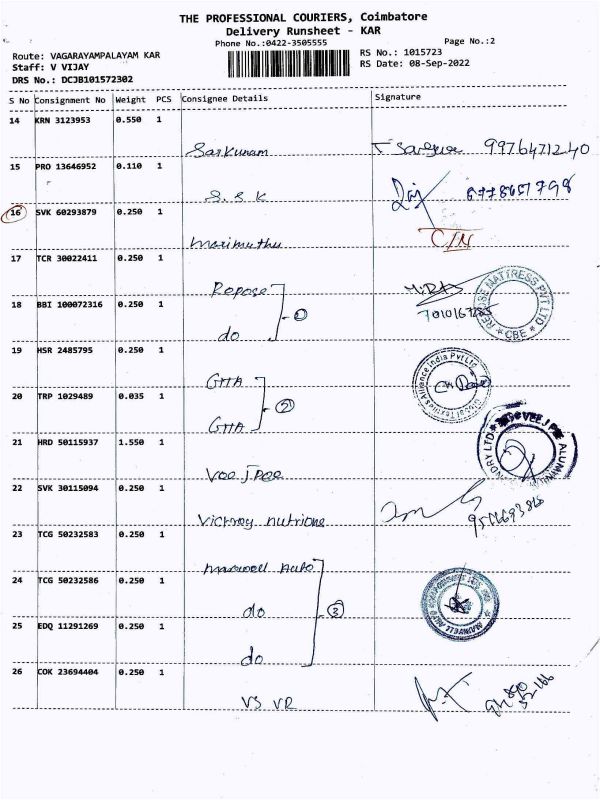 THE PROFESSIONAL COURIERS, Coimbatore
Delivery Runsheet - KAR
Phone No.:0422-3505555 Page No.:2
Route: VAGARAYAMPALAYAM KAR
Staff: V VIJAY
DRS No.: DCJB101572302
RS No.: 1015723
RS Date: 08-Sep-2022
S No Consignment No Weight PCS Consignee Details Signature
14 KRN 3123953 0.550 1
Sarkunam 9976471240
15 PRO 13646952 0.110 1
S. S. K
16 SVK 60293879 0.250 1
Marimuthu C/N
17 TCR 30022411 0.250 1
Repose
18 BBI 100072316 0.250 1
do 1
REPOSE MATTRESS PVT LTD * CBE *
19 HSR 2485795 0.250 1
GTTA
20 TRP 1029489 0.035 1
GTTA 2
Global Textiles Alliance India Pvt Ltd
21 HRD 50115937 1.550 1
Vee J Pee
VEE J PEE ALUMINIUM
22 SVK 30115094 0.250 1
Victroy nutrione
23 TCG 50232583 0.250 1
Maxwell Auto
24 TCG 50232586 0.250 1
do 3
25 EDQ 11291269 0.250 1
do
26 COK 23694404 0.250 1
VS VR